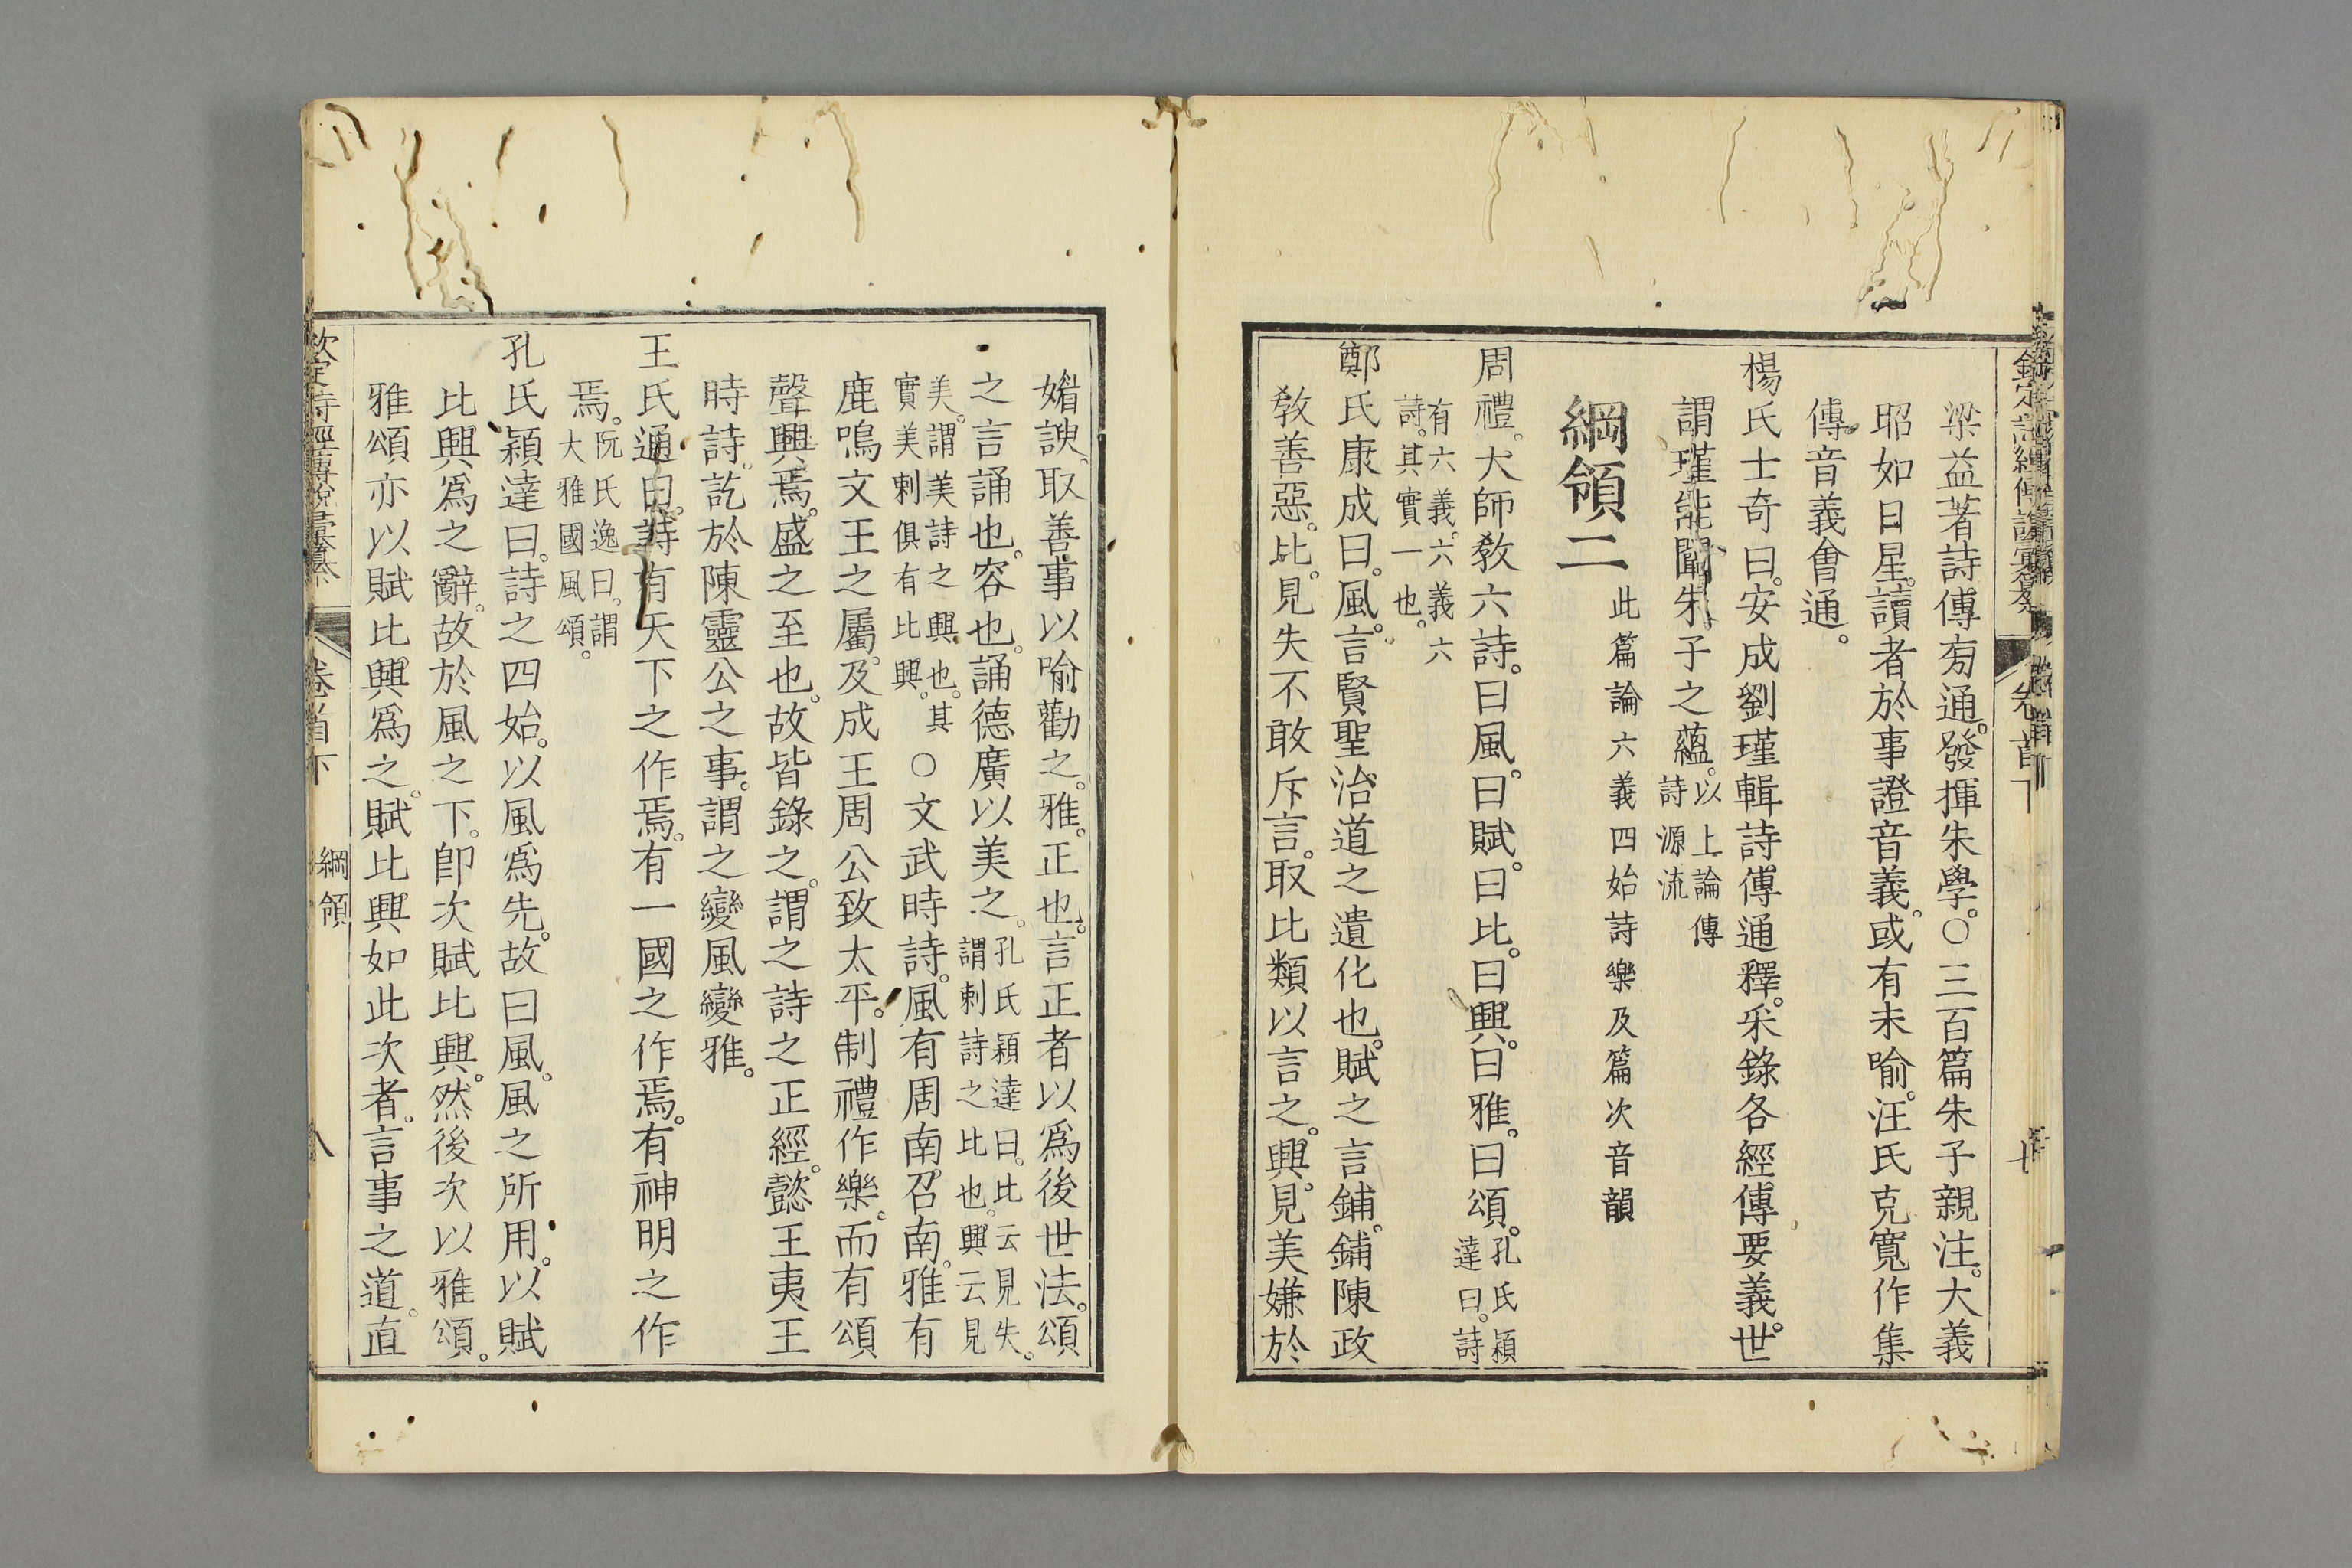 梁益著詩傳旁通。發揮朱學。○三百篇朱子親注。大義
昭如日星。讀者於事證音義。或有未喻。汪氏克寬作集
傳音義會通。
楊氏士奇曰。安成劉瑾輯詩傳通釋。采錄各經傳要義。世
謂瑾能闡朱子之蘊。以上論傳
詩源流
綱領二
此篇論六義四始詩樂及篇次音韻
周禮。大師敎六詩。曰風。曰賦。曰比。曰興。曰雅。曰頌。孔氏穎
達曰。詩
有六義。六義六
詩。其實一也。
鄭氏康成曰。風。言賢聖治道之遺化也。賦之言鋪。鋪陳政
敎善惡。比。見失不敢斥言。取比類以言之。興。見美嫌於
媚諛。取善事以喻勸之。雅。正也。言正者以爲後世法。頌
之言誦也。容也。誦德廣以美之。孔氏穎達曰。比云見失。
謂刺詩之比也。興云見
美。謂美詩之興也。其
實美刺俱有比興。○文武時詩。風有周南召南。雅有
鹿鳴文王之屬。及成王周公致太平。制禮作樂。而有頌
聲興焉。盛之至也。故皆錄之。謂之詩之正經。懿王夷王
時詩。訖於陳靈公之事。謂之變風變雅。
王氏通曰。詩有天下之作焉。有一國之作焉。有神明之作
焉。阮氏逸曰。謂
大雅國風頌。
孔氏穎達曰。詩之四始。以風爲先。故曰風。風之所用。以賦
比興爲之辭。故於風之下。卽次賦比興。然後次以雅頌。
雅頌亦以賦比興爲之。賦比興如此次者。言事之道。直
欽定詩經傳說彙纂 卷首下 綱領 八